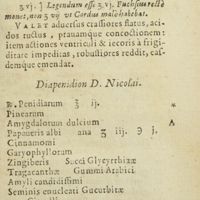 ʒ vj. ] Legendum esse ʒ vj. Fuchsius recte
monet, non ʒ vij vt Cordus male habebat.
VALET aduersus crassiores flatus, aci-
dos ructus, prauamque concoctionem:
item actiones ventriculi & iecoris à frigi-
ditate impeditas, robustiores reddit, eas-
demque emendat.
Diapenidion D. Nicolai.
℞. Penidiarum ℥ ij.
Pinearum
Amygdalorum dulcium A
Papaueris albi ana ʒ iij. ℈ j.
Cinnamomi
Garyophyllorum
Zingiberis Succi Glycyrrhizæ
Tragacanthæ Gummi Arabici
Amyli candidissimi
Seminis enucleati Cucurbitæ